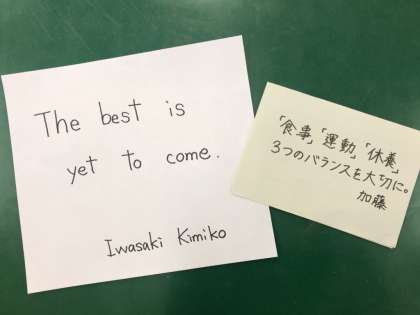 The best is
yet to come.
Iwasaki Kimiko
「食事」「運動」「休養」
3つのバランスを大切に。
加藤